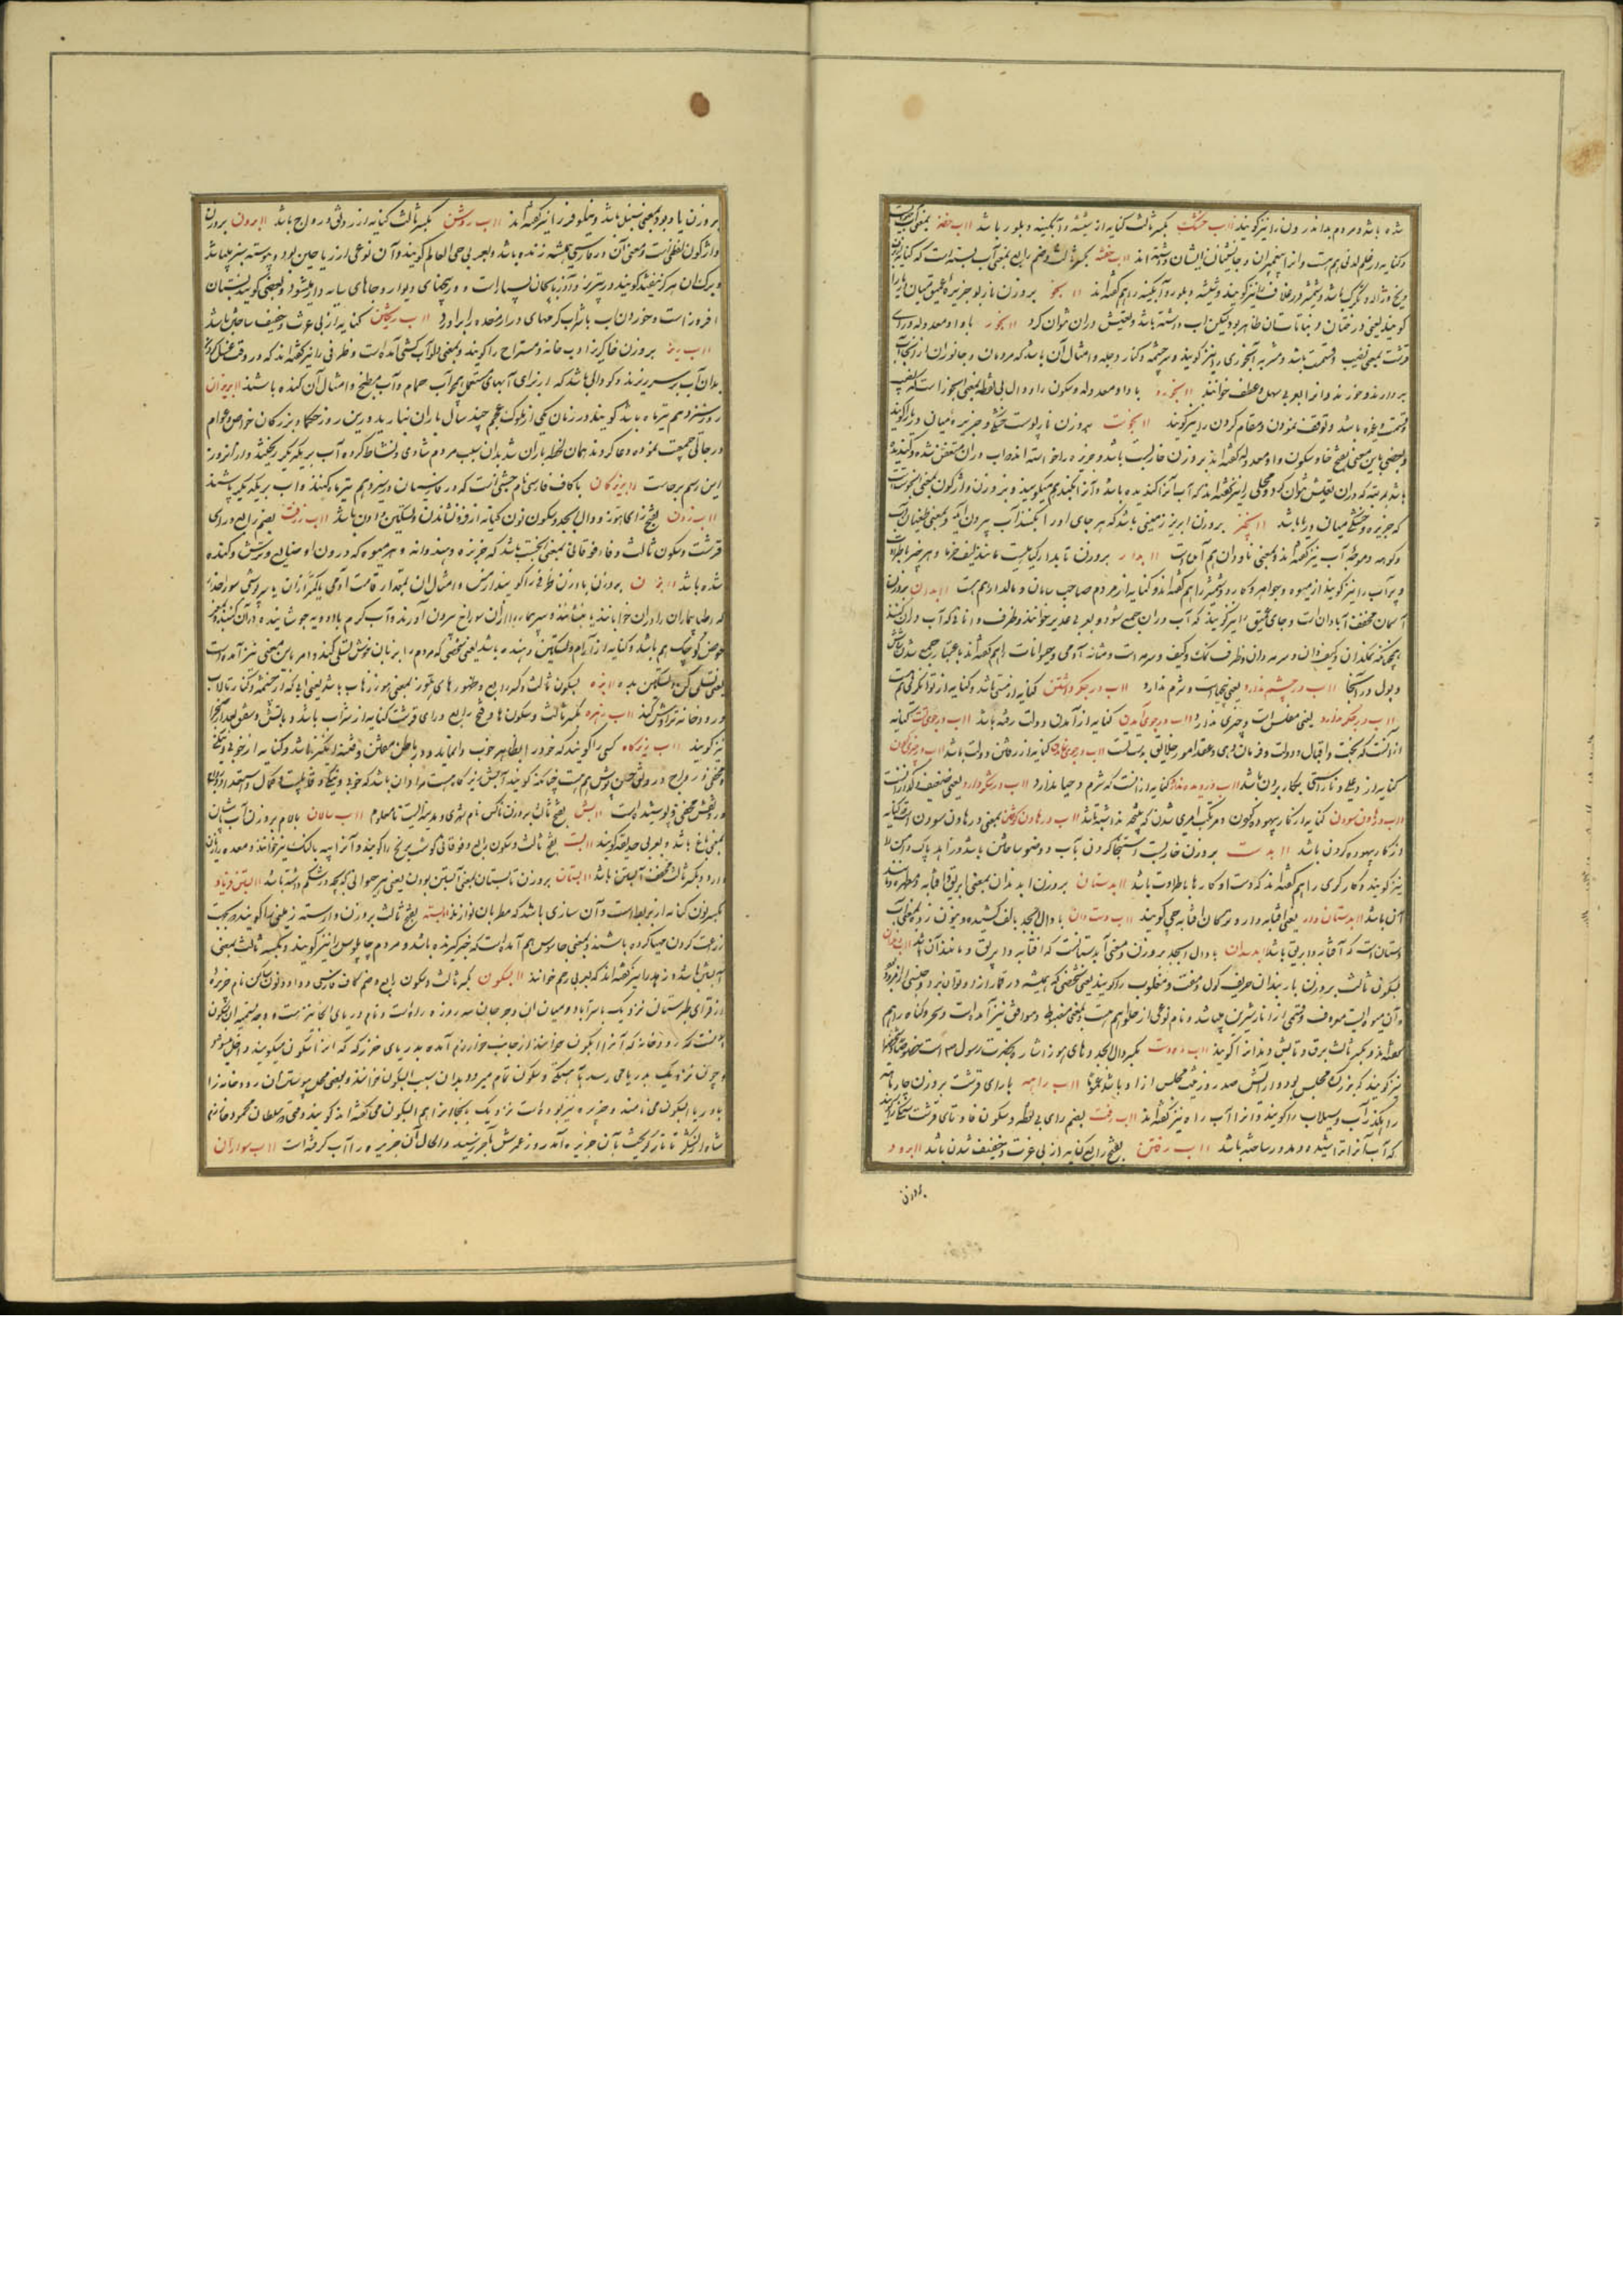 شده باشد و مردم بد اندرون را نیز گویند آب خشک بکسر ثالث کنایه از شیشه و آبگینه و بلور باشد آب خضر بمعنی آب حیات
و کنایه از علم لدنی هم هست و آنرا پیغمبران و جانشینان ایشان دانسته اند آب خفته بکسر ثالث و ضم رابع بمعنی آب بسته است که کنایه از
یخ و ژاله و تگرگ باشد و شمشیر در غلاف را نیز گویند و شیشه و بلور و آبگینه را هم گفته اند آبخو بروزن نازبو جزیره میان دریا را
گویند یعنی درختان و نباتات آن ظاهر بود و لیکن آب داشته باشد و تعیش در آن توان کرد آبخور با واو معدوله و رای
قرشت بمعنی نصیب و قسمت باشد و مشربه آبخوری را نیز گویند و سرچشمه و کنار دجله و امثال آن باشد که مردمان و جانوران از آنجا آب
بردارند و خورند و آنرا بعربی منهل و عطف خوانند آبخورد با واو معدوله و سکون را و دال بی نقطه بمعنی آبخور است که نصیب
و قسمت و غیره باشد و توقف نمودن و مقام کردن را نیز گویند آبخوست بروزن نارپوست خشکی و جزیره میان دریا را گویند
و بعضی باین معنی بفتح خا و سکون واو معدوله گفته اند بروزن خاربست باشد و خربزه را خواسته اند که آب در آن متعفن شده و گندیده
باشد بمرتبه که در آن تعیش نتوان کرد و محلی را نیز گفته اند که آب آنرا کنده باشد و آنرا آبکند هم میگویند و بروزن واژگون بمعنی آبخوست است
که جزیره و خشکی میان دریا باشد آبخیز بروزن آبریز زمینی باشد که هر جای او را بکنند آب بیرون آید و بمعنی طغیان آب
و کوهه و موجه آب نیز گفته اند و بمعنی ناودان هم آمده است آبدار بروزن تابدار گیاهیست مانند لیف خرما و هر چیز باطراوت
و پرآب را نیز گویند از میوه و جواهر و کارد و شمشیر را هم گفته اند و کنایه از مردم صاحب سامان و مالدار هم هست آبدان بروزن
آسمان مخفف آبادان است و جای عمیق را نیز گویند که آب در آن جمع شود و بعربی غدیر خوانند و ظرف و انائی که آب در آن کنند
همچنانکه نمکدان و کیفدان و سرمه دان و ظرف نمک و کیف و سرمه است و مثانه آدمی و حیوانات را هم گفته اند باعتبار جمع شدن شاش
و بول در آنجا آب در چشم ندارد یعنی بیحیاست و شرم ندارد آب در جگر داشتن کنایه از هستی باشد و کنایه از توانگری هم هست
آب در جگر ندارد یعنی مفلس است و چیزی ندارد آب در جوی آمدن کنایه از آمدن دولت رفته باشد آب در جوی تست کنایه
از آنست که بخت و اقبال و دولت و فرمان دهی و عقد امور خلایق بدست تست آب در جوی نماندن کنایه از رفتن دولت باشد آب در چیزی کردن
کنایه از دغلی و ناراستی بکار بردن باشد آب در دیده ندارد کنایه از آنست که شرم و حیا ندارد آب در شکر دارد یعنی ضعیف و گدازانست
آب در هاون سودن کنایه از کار بیهوده کردن و مرتکب امری شدن که نتیجه نداشته باشد آب در هاون کوفتن بمعنی در هاون سودن است که کنایه
از کار بیهوده کردن باشد آبدست بروزن خاربست استنجا کردن بآب و وضو ساختن باشد و زاهد پاکدامن را
نیز گویند و کارگری را هم گفته اند که دست او کارها با طراوت باشد آبدستان بروزن آبدندان بمعنی ابریق و آفتابه و مطهره و مانند
آن باشد آبدستان دار یعنی آفتابه دار و ترکان آفتابه چی گویند آب دست دان با دال ابجد بالف کشیده و بنون زده بمعنی آب
دستان است که آفتابه و ابریق باشد آبدسدان با دال ابجد بر وزن و معنی آبدستانست که آفتابه و ابریق و مانند آن باشد آبدندان
بسکون ثالث بروزن باربندان حریف گول و مفت و مغلوب را گویند یعنی شخصی که همیشه در قمار از او توان برد و جنسی از امرود بود
و آن میوه ایست معروف و قسمی از انار شیرین میباشد و نام نوعی از حلوا هم هست و بمعنی مضبوط و موافق نیز آمده است و سحرگاه را هم
گفته اند و بکسر ثالث برق و تابش دندانرا گویند آب ده دست بکسر دال ابجد و های هوز اشاره بحضرت رسول ص است و شخصی را
نیز گویند که بزرگ مجلس بود و آرایش صدر و زینت مجلس از او باشد آب راهه با رای قرشت بروزن چارماهه
راهگذر آب و سیلاب را گویند و آنرا آب راه نیز گفته اند آب رفت بضم رای بی نقطه و سکون فا و تای قرشت سنگی را گویند
که آب آنرا تراشیده و مدور ساخته باشد آب رفتن بفتح رابع کنایه از بی عزت و خفیف شدن باشد آبرود
بروزن
بروزن یا دبود بمعنی سنبل باشد و نیلوفر را نیز گفته اند آب روشن بکسر ثالث کنایه از رونق و رواج باشد آبرون بروزن
واژگون لفظی است و معنی آن در فارسی همیشه زنده باشد و بعربی حی العالم گویند و آن نوعی از ریاحین بود و پیوسته سبز میباشد
و برگ آن هرگز نیفتد گویند در تبریز و آذربایجان بسیار است و در بیخهای دیوار و جاهای سایه دار میشود و بعضی گویند بستان
افروز است و خوردن آب با شراب کرمهای دراز معده را برآورد آب ریختن کنایه از بی عزت و خفیف ساختن باشد
آبریز بروزن خاکریز ادب خانه و مستراح را گویند و بمعنی دلو آب کشی آمده است و ظرفی را نیز گفته اند که در وقت غسل کردن
بدان آب بر سر ریزند و گودالی باشد که از برای آبهای مستعمل همچو آب حمام و آب مطبخ و امثال آن کنده باشند آبریزان
روز سیزدهم تیرماه باشد گویند در زمان یکی از ملوک عجم چند سال باران نبارید در این روز حکما و بزرگان خواص و عوام
در جائی جمعیت نموده دعا کردند همان لحظه باران شد بدان سبب مردم شادی و نشاط کرده آب بر یکدیگر ریختند و از آن روز
این رسم برجاست آبریزگان با کاف فارسی نام جشنی است که در فارسیان در سیزدهم تیرماه کنند و آب بر یکدیگر پاشند
آب زدن بفتح زای هوز و دال ابجد و سکون نون کنایه از فرو نشاندن و تسکین دادن باشد آب زرفت بضم رابع و رای
قرشت و سکون ثالث و فا و فوقانی بمعنی لخت باشد که خربزه و هندوانه و هر میوه که درون او ضایع و ترش و گنده
شده باشد آبزن بروزن بادزن ظرفی را گویند از مس و امثال آن بمقدار قامت آدمی یا کمتر از آن با سرپوشی سوراخدار
که اطبا بیماران را در آن خوابانند یا بنشانند و سر بیمار را از آن سوراخ بیرون آورند و آب گرم با ادویه جوشانیده در آن کنند
حوض کوچک هم باشد و کنایه از آرام و تسکین دهنده باشد یعنی شخصی که مردم را بزبان خوش تسلی کند و امر باین معنی نیز آمده است
یعنی تسلی کن و تسکین بده آبزه بسکون ثالث و کسر رابع و ظهور های هوز بمعنی هوز زهاب باشد یعنی آبی که از چشمه و کنار تالاب
و رودخانه تراوش کند آب زهره بکسر ثالث و سکون ها و فتح رابع و رای قرشت کنایه از شراب باشد و دانش و معقول صبح را
نیز گویند آب زیر کاه کسی را گویند که خود را بظاهر خوب وانماید و در باطن مفتن و فتنه انگیز باشد و کنایه از خوبی و نیکی
مخفی و رواج و رونق حسن پوش هم هست چنانکه گویند آبش زیر کاه هست مراد آن باشد که خوبی و نیکی و قابلیت و کمال و استعداد دارد
و رونقش مخفی و پوشیده است آبس بفتح ثالث بروزن ناکس نام شهری و مدینه ایست نامعلوم آب سالان با لام بروزن آب شان
بمعنی باغ باشد و بعربی حدیقه گویند آبست بفتح ثالث و سکون رابع و فوقانی گوشت ترنج را گویند و آنرا پیه بالنگ نیز خوانند و معده را زیان
دارد و بکسر ثالث مخفف آبستن باشد آبستان بروزن تابستان بمعنی آبستن بودن یعنی هر حیوانی که بچه در شکم داشته باشد آبستن فریاد
بکسر نون کنایه از بربط است و آن سازی باشد که مطربان نوازند آبسته بفتح ثالث بروزن وارسته زمینی را گویند که بجهت
زراعت کردن مهیا کرده باشند و بمعنی جاسوس هم آمده است که خبر گیرنده باشد و مردم چاپلوس را نیز گویند و بکسر ثالث بمعنی
آبستن باشد و زهدان را نیز گفته اند که بعربی رحم خوانند آبسکون بکسر ثالث و سکون رابع و ضم کاف فارسی و واو و نون ساکن نام جزیره
از قرای طبرستان نزدیک باستراباد و میان آن و جرجان سه روزه راه است و نام دریای آنجا نیز هست و وجه تسمیه آن بآبسکون
اینست که رودخانه که آنرا آبگون خوانند از جانب خوارزم آمده بدریای خزر که آنرا آبسکون میگویند داخل میشود
و چون نزدیک بدریا می رسد بآهستگی و سکون تمام میرود بدان سبب آبسکون خوانند و بعضی محل پیوستن آن رودخانه را
بدریا آبسکون می نامند و جزیره نیز بوده است نزدیک بآنجا و آنرا هم آبسکون می گفته اند گویند وقتی سلطان محمود خوارزم
شاه از لشکر تاتار گریخت بآن جزیره آمد و روز عمرش بآخر رسید و الحال آن جزیره را آب گرفته است آب سواران